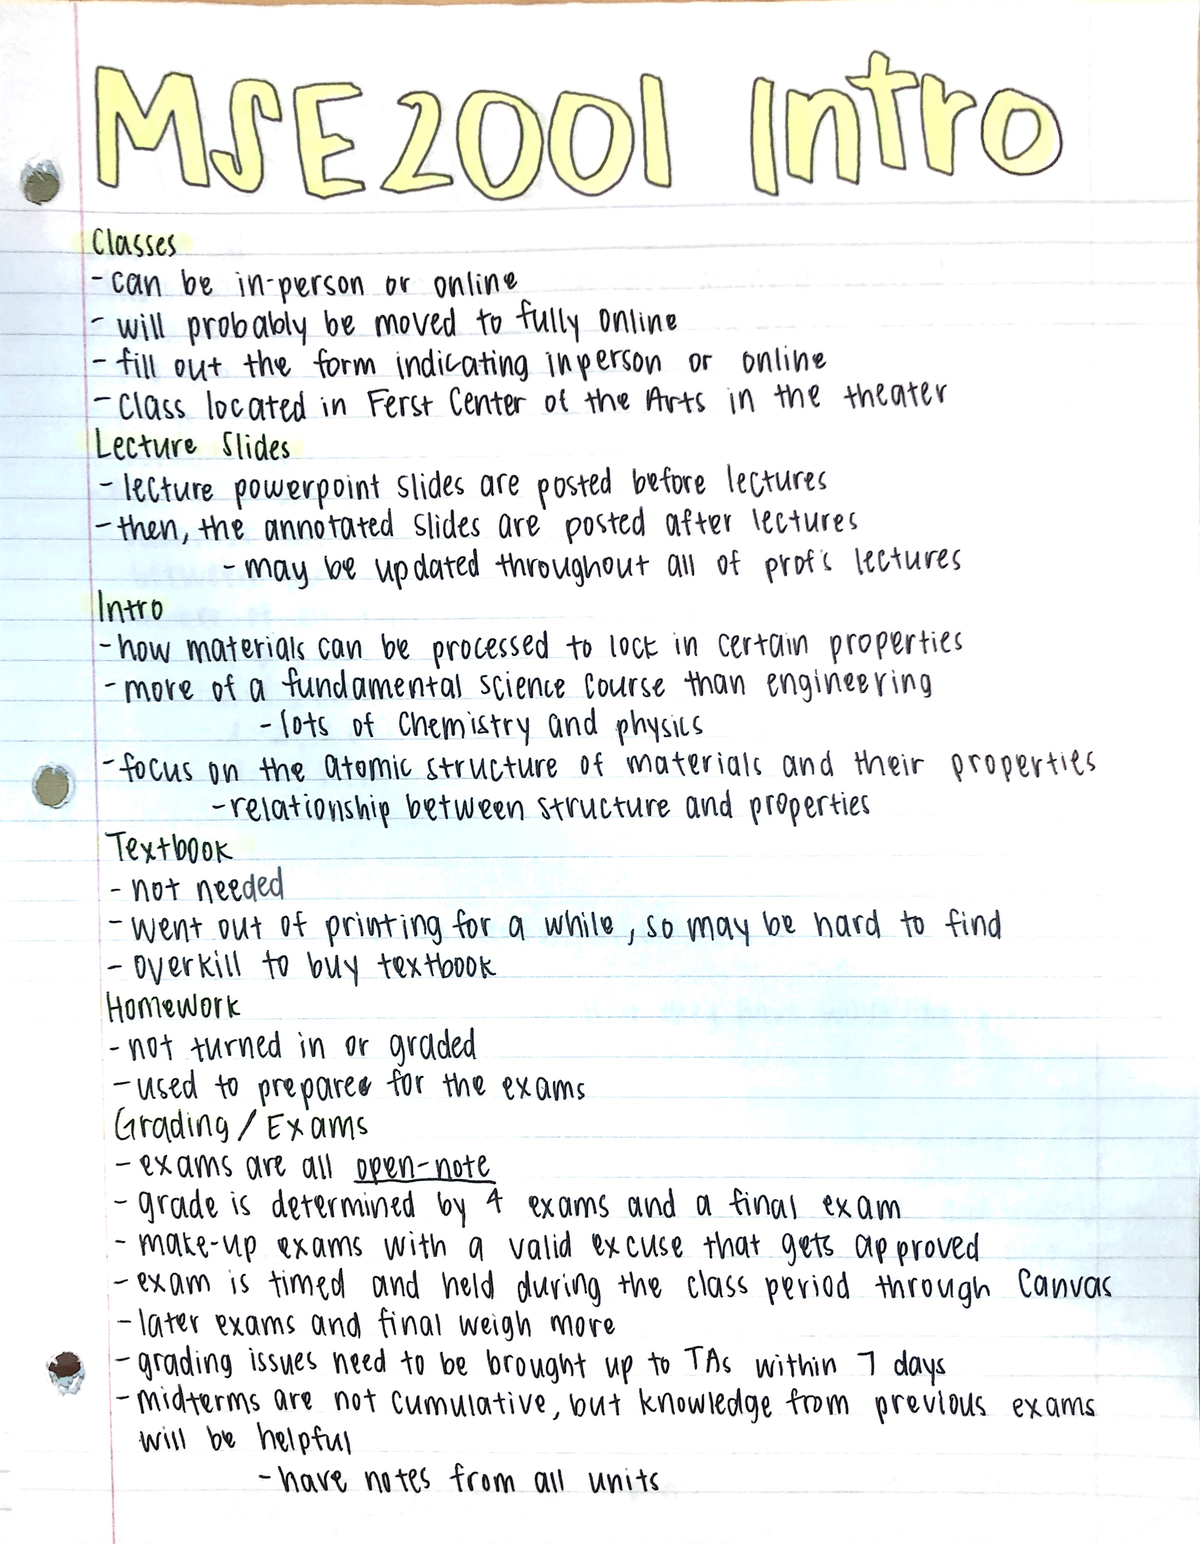 MSE 2001 Intro
Classes
- can be in-person or online
- will probably be moved to fully online
- fill out the form indicating inperson or online
- Class located in Ferst Center of the Arts in the theater
Lecture Slides
- lecture powerpoint slides are posted before lectures
- then, the annotated slides are posted after lectures
- may be updated throughout all of prof's lectures
Intro
- how materials can be processed to lock in certain properties
- more of a fundamental science course than engineering
- lots of chemistry and physics
- focus on the atomic structure of materials and their properties
- relationship between structure and properties
Textbook
- not needed
- went out of printing for a while, so may be hard to find
- overkill to buy textbook
Homework
- not turned in or graded
- used to prepare for the exams
Grading / Exams
- exams are all open-note
- grade is determined by 4 exams and a final exam
- make-up exams with a valid excuse that gets approved
- exam is timed and held during the class period through Canvas
- later exams and final weigh more
- grading issues need to be brought up to TAs within 7 days
- midterms are not cumulative, but knowledge from previous exams
will be helpful
- have notes from all units